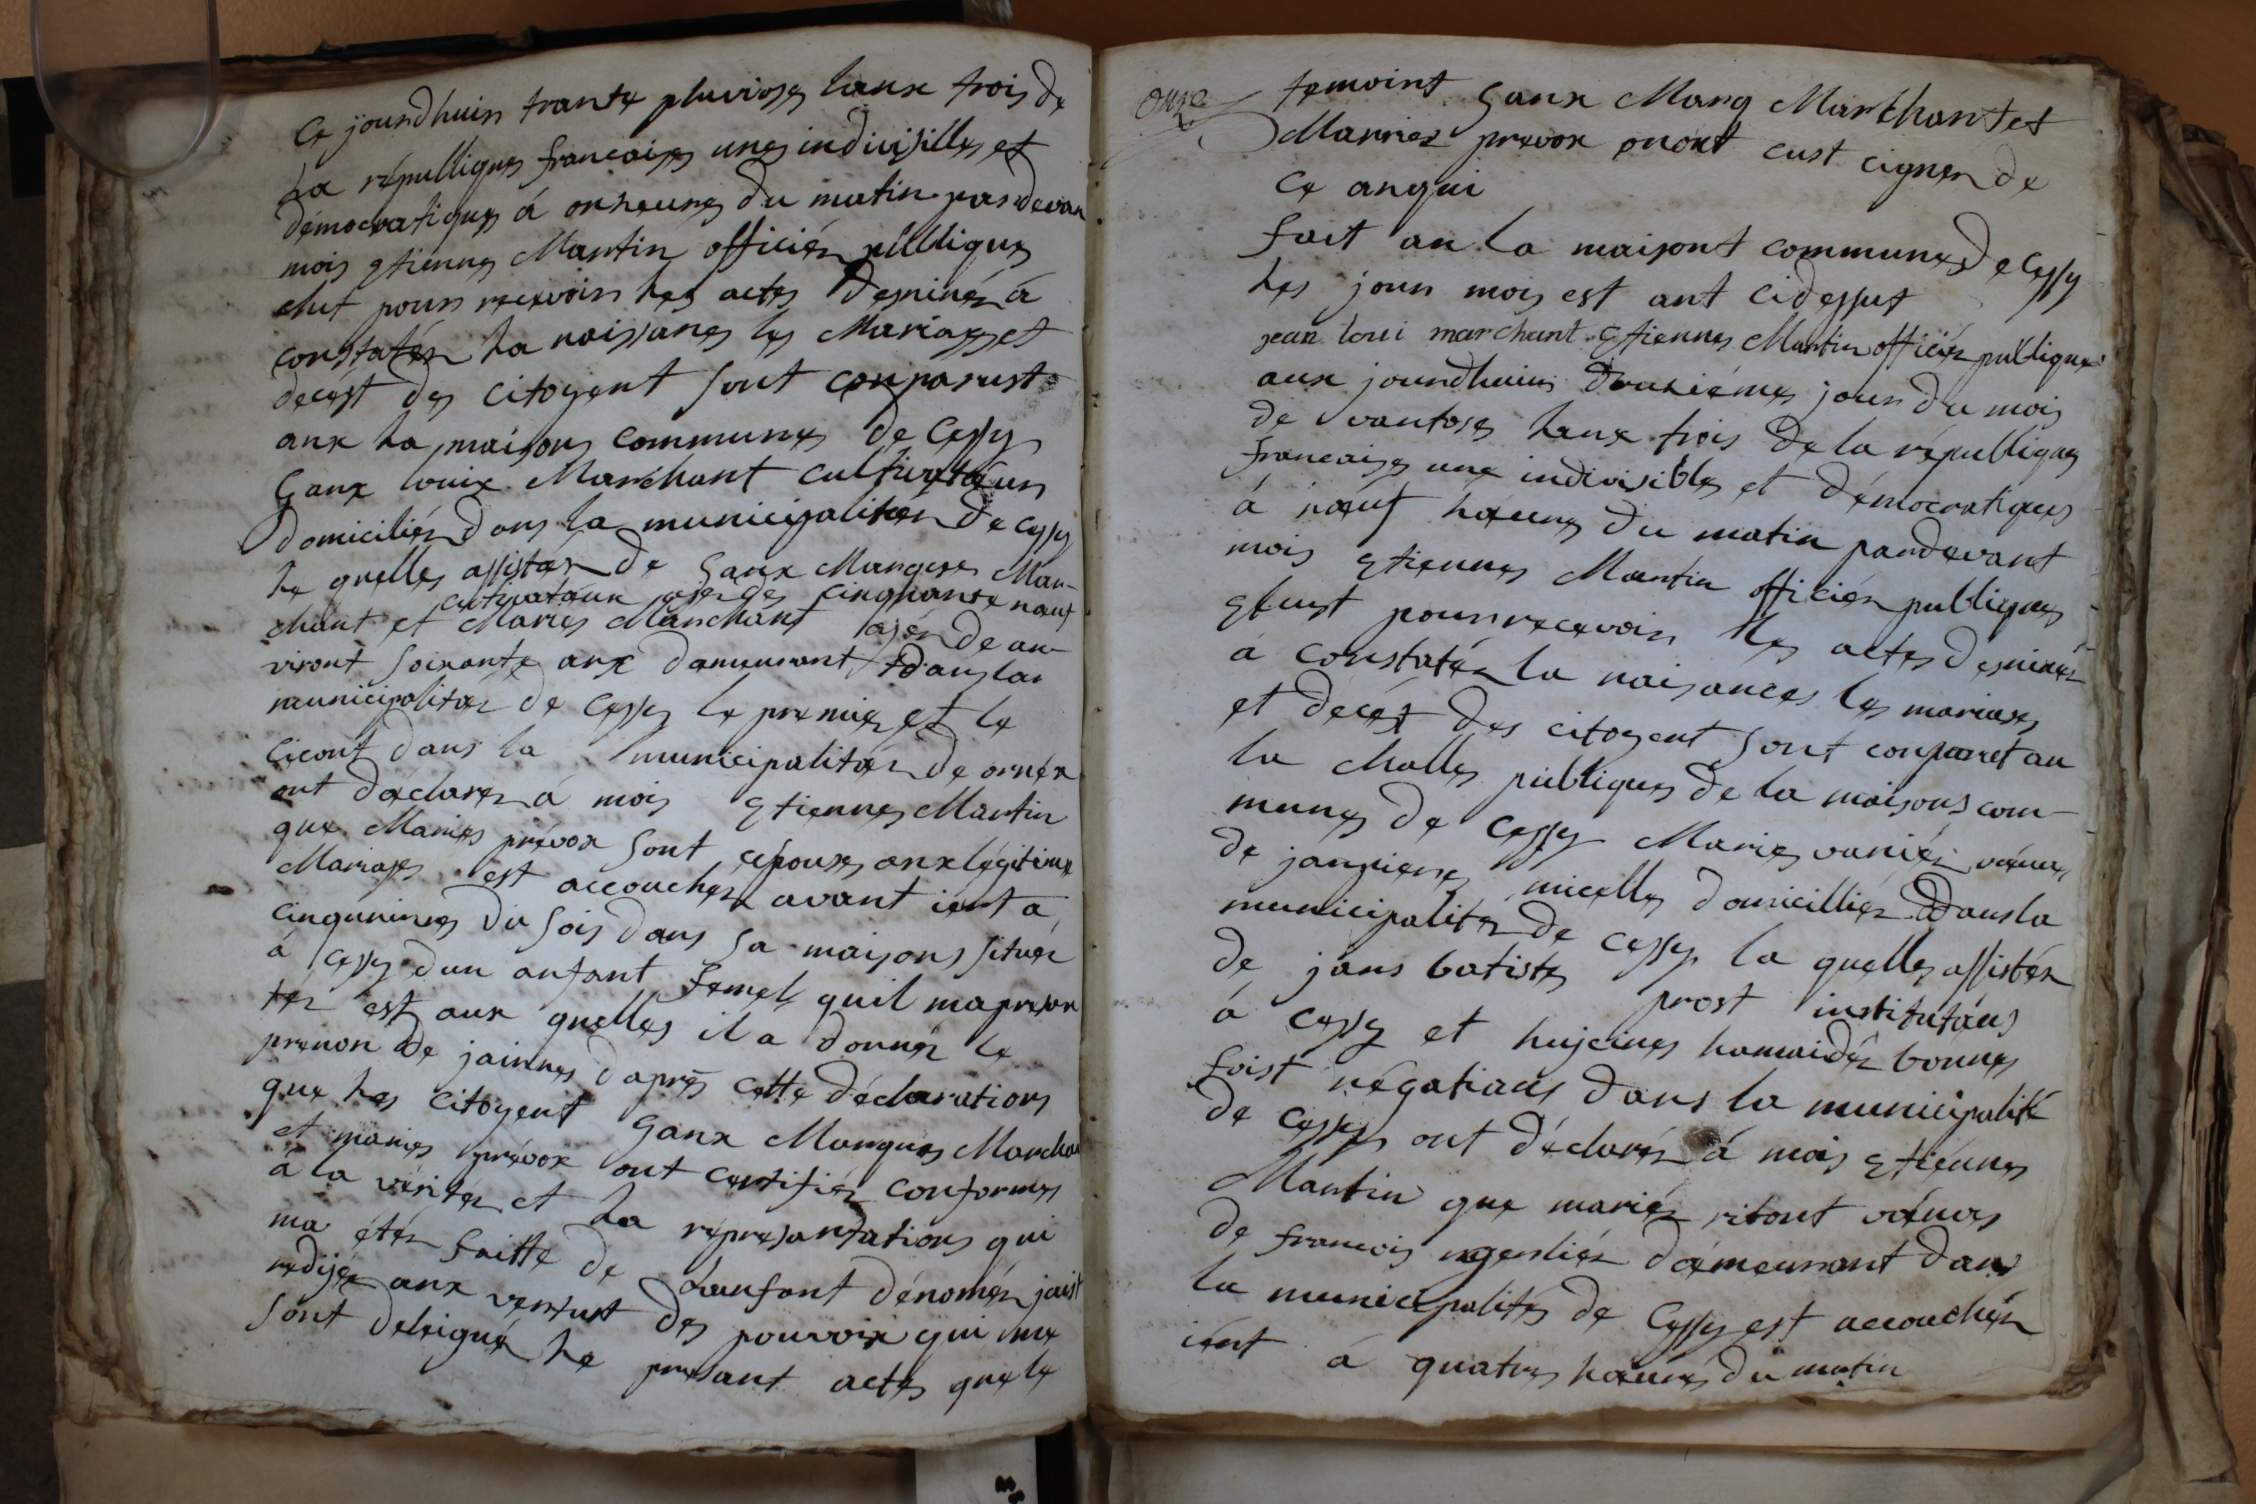 Ce jourdhuis trante pluviose laux trois de
La républiques francaises unes indivisilles et
démocratiques á onheures du matin par devan
mois Etiennes Martin officiér publique
elut pour recevoir les actes desinér á
constatér la naissances les Mariages et
decést des citoyent sont conparust
aux la maisons communes de Cessy
Gaux louix Marchant cultivatéur
domiciliér dans la municipalitéer de cessy
le quelles assistér de Gaux Marques Mar-
cutivataux agér de cinquante nauf
chant et Maries Marchant agér de an-
viront soixante anx demeurant dans la
municipalitaer de Cessy le premier et le
cicont dans la municipalitaer de ornéx
ont déclarer á mois Etiennes Martin
que Maries prévox sont epouses anx légitime
Mariages est accoucher avant iert a
cinqunires du sois dans sa maisons situér
á Cessy dun anfant femel quil ma presan
ter est aux quelles il a donnér le
prenon de jainnes dapres cette déclarations
que les citoyent Ganx Marques Marchan
et maries prévox ont certifiér conformes
á la véritér et La représantations qui
ma étér faitte de Lanfant dénomér jaist
redijér anx vertust des pouvoix qui me
sont deleigué Le presant actes que le
onze
temoint Ganx Marq Markhant et
Marrier prevox onont cust cigner de
ce anqui
fait an la maisont communes de Cessy
les jour mois est ant cidessut
jean loui marchant Etiennes Martin officiér publique
aux jourdhuis deuxiémes jour du mois
de vantoses Lanx trois de la républiques
francaises une indivisibles et démocratiques
á nœuf hæures du matin pardevant
mois Etiennes Martin officiér publiques
Elust pour recevoir les actes desinér
á constatér la naisances les mariages
et décést des citoyent sont conparret au
la challes publiques de la maisons com-
munes de Cessy Maries variér véuves
de janpieres micelles domicilliér dans la
municipalitér de Cessy la quelles assistér
de jans batistes prost institutáus
á Cessy et hujeines hamaidér bonnes
foist négotiaus dans la municipalité
de Cessy ont déclarér á mois Etiénnes
Martin que mariér ritont véuves
de francois dæmeurant dans
la municipalités de Cessy est accouchér
iert á quatres hæures du matin